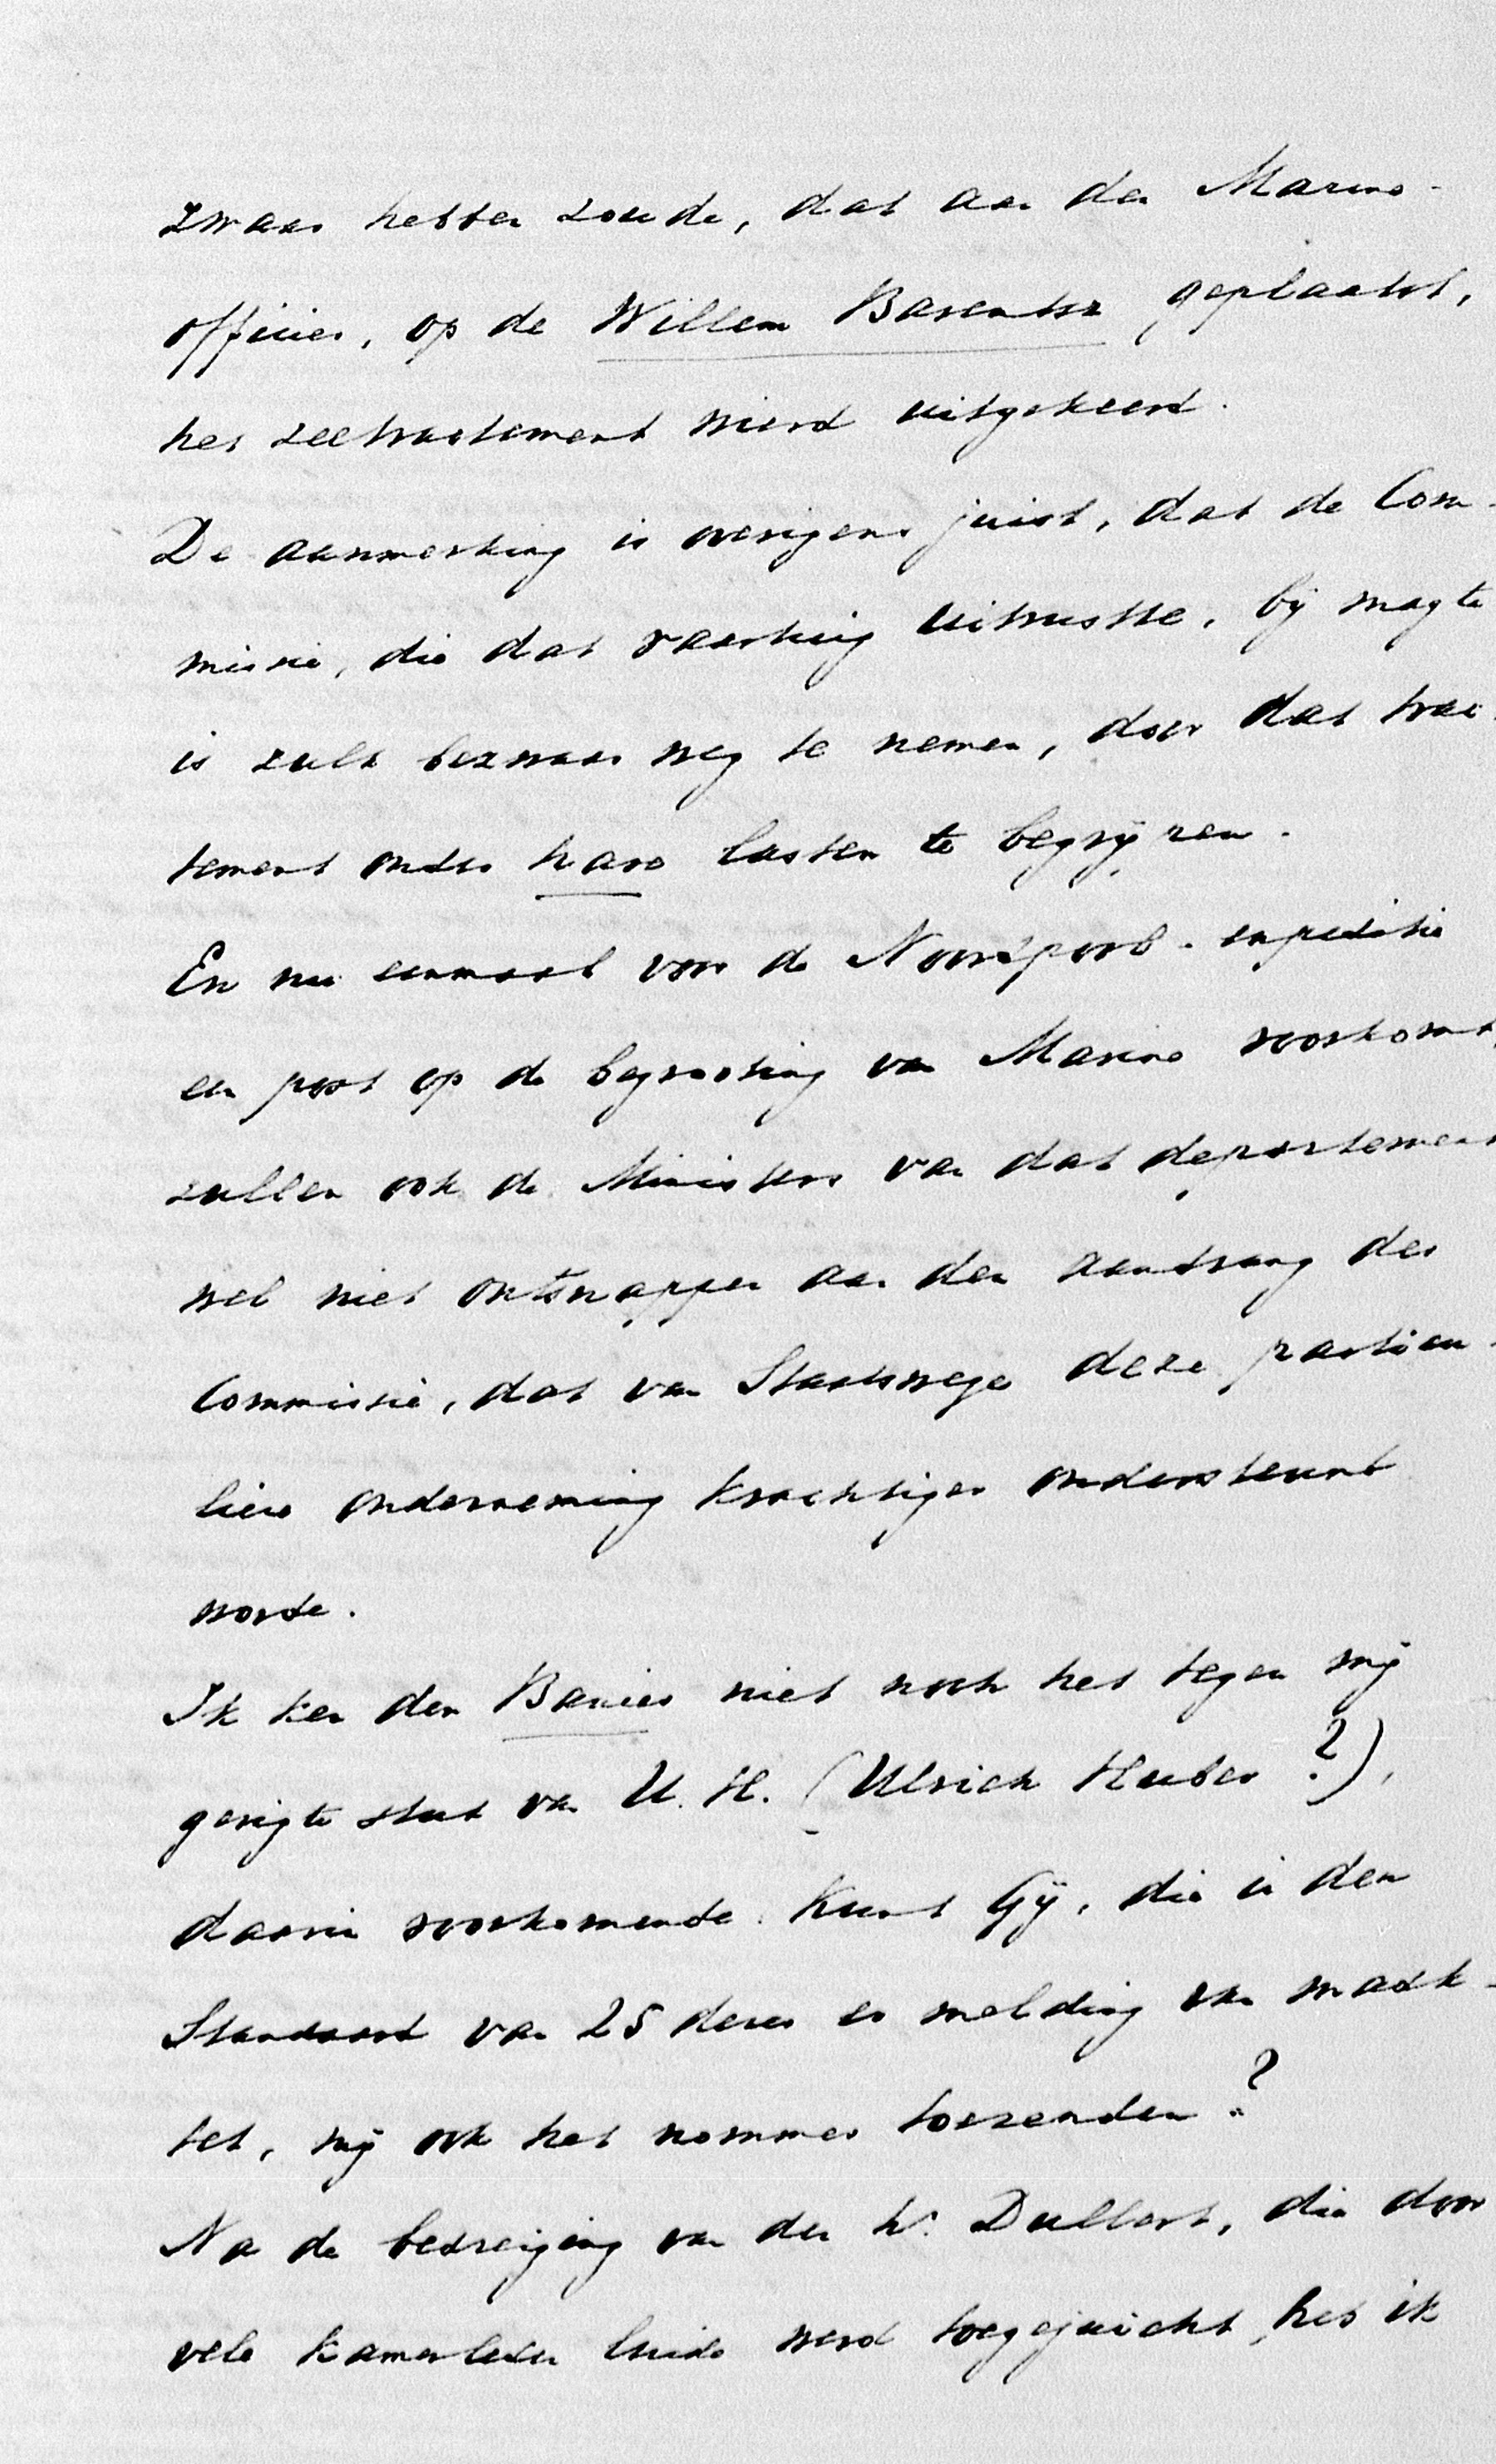 zwaar hebben zoude, dat aan den Marine-
officier, op de Willem Barentsz geplaatst,
het zeetractement wierd uitgekeerd.
De aanmerking is overigens juist, dat de Com-
missie, die dat vaartuig uitrustte, bij magte
is zulk bezwaar weg te nemen, door dat trac-
tement onder hare lasten te begrijpen.
En nu eenmaal voor de Noordpool-expeditie
een post op de begrooting van Marine voorkomt,
zullen ook de Ministers van dat departement
wel niet ontsnappen aan den aandrang der
Commissie, dat van Staatswege deze particu-
liere onderneming krachtiger ondersteund
worde.
Ik ken den Banier niet noch het tegen mij
gerigte stuk van U. H. (Ulrich Huber?),
daarin voorkomende. Kunt Gij, die in den
Standaard van 25 dezer er melding van maak-
tet, mij ook het nommer toezenden?
Na de bedreiging van den hr. Dullert, die door
vele kamerleden luide werd toegejuicht, heb ik